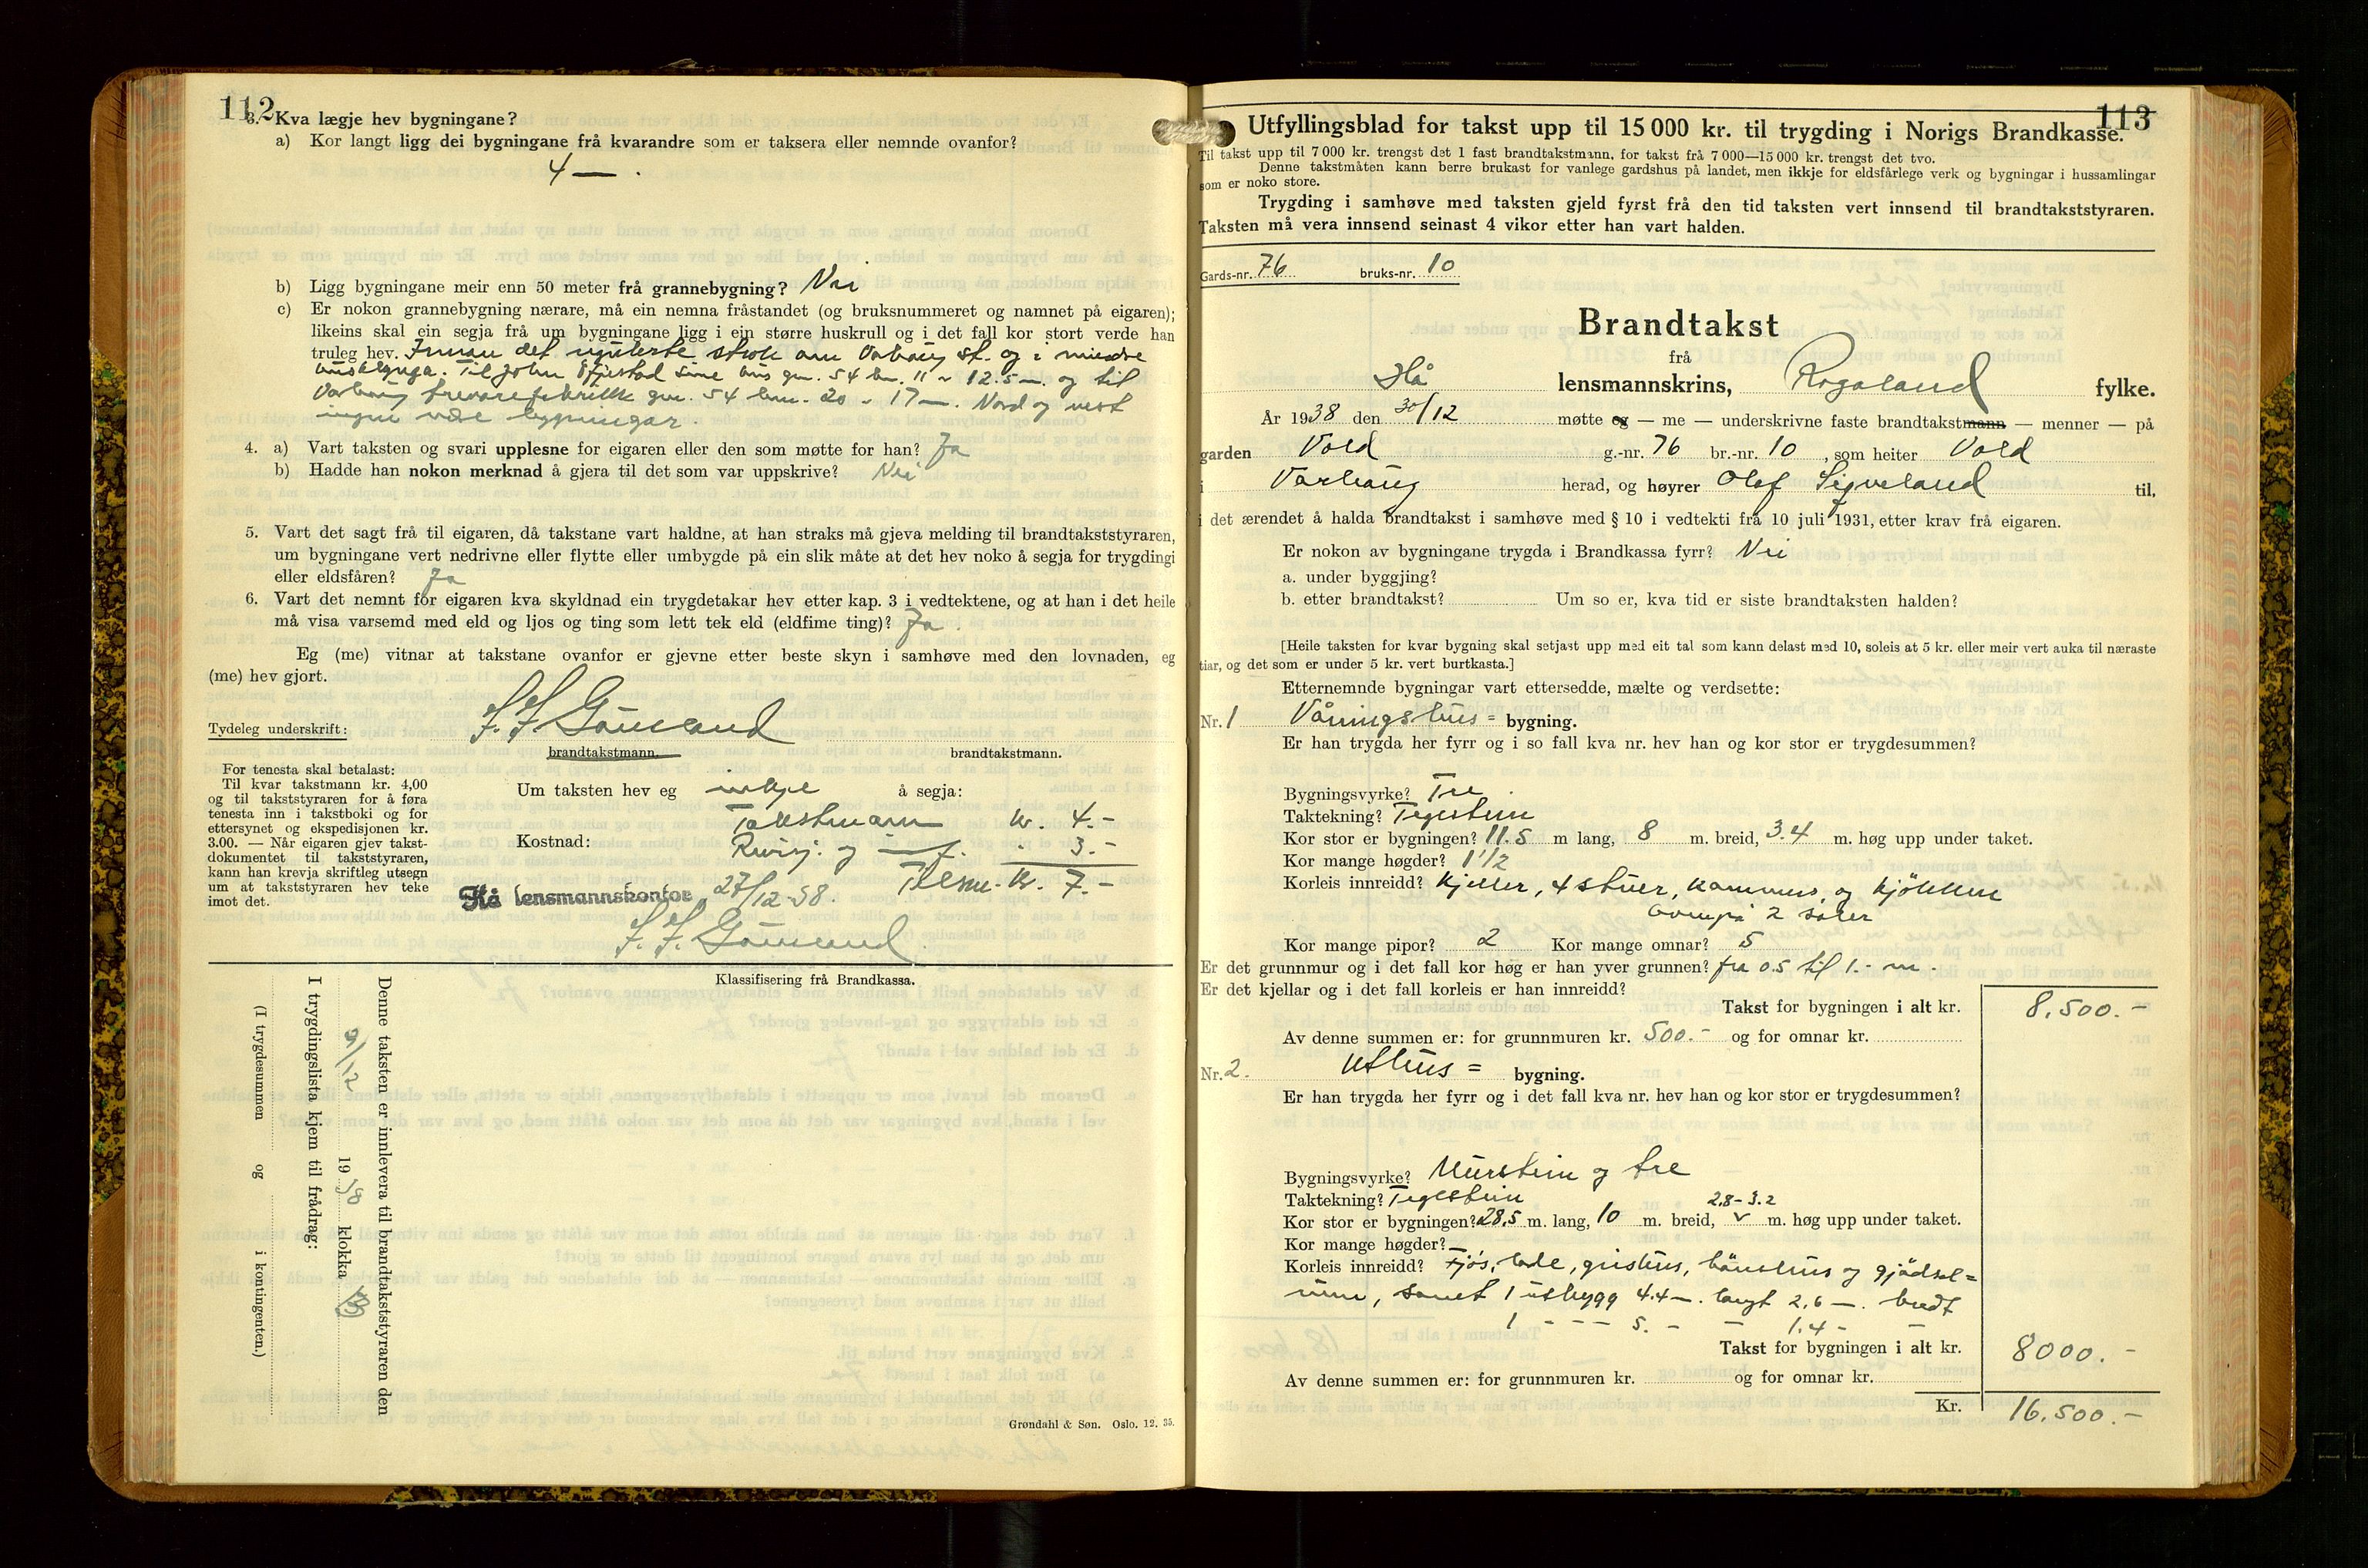 112
3. Kva lægje hev bygningane?
a) Kor langt ligg dei bygningane frå kvarandre som er taksera eller nemnde ovanfor?
4 — .
b) Ligg bygningane meir enn 50 meter frå grannebygning? Nei
c) Er nokon grannebygning nærare, må ein nemna fråstandet (og bruksnummeret og namnet på eigaren);
likeins skal ein segja frå um bygningane ligg i ein større huskrull og i det fall kor stort verde han
truleg hev. Innan det regulerte strok om Varhaug st. og i mindre
Til John sine hus gnr. 54 bnr. 11 " 12.5 m. og til
Varhaug trevarefabrikk gnr. 54 bnr. 20 " 17 —. Nord og vest
ingen nære bygningar.
4. a) Vart taksten og svari upplesne for eigaren eller den som møtte for han? Ja
b) Hadde han nokon merknad å gjera til det som var uppskrive? Nei
5. Vart det sagt frå til eigaren, då takstane vart haldne, at han straks må gjeva melding til brandtakststyraren,
um bygningane vert nedrivne eller flytte eller umbygde på ein slik måte at det hev noko å segja for trygdingi
eller eldsfåren? Ja
6. Vart det nemnt for eigaren kva skyldnad ein trygdetakar hev etter kap. 3 i vedtektene, og at han i det heile
må visa varsemd med eld og ljos og ting som lett tek eld (eldfime ting)? Ja.
Eg (me) vitnar at takstane ovanfor er gjevne etter beste skyn i samhøve med den lovnaden, eg
(me) hev gjort.
Tydeleg underskrift:
brandtakstmann. brandtakstmann.
For tenesta skal betalast:
Til kvar takstmann kr. 4,00
og til takststyraren for å føra
tenesta inn i takstboki og for
ettersynet og ekspedisjonen kr.
3.00. — Når eigaren gjev takst-
dokumentet til takststyraren,
kann han krevja skriftleg utsegn
um at takststyraren hev teke
imot det.
Um taksten hev eg inkje å segja:
Kostnad: Takstmann kr. 4.-
Revisj. og — f. . 3.-
Hå lensmannskontor 27/12-38. Tilsm. kr. 7.-
Klassifisering frå Brandkassa.
Denne taksten er innlevera til brandtakststyraren den
9/12 1938 klokka 13
I trygdingslista kjem til frådrag:
(I trygdesummen og i kontingenten.)
Grøndahl & Søn. Oslo. 12. 35.
113
Utfyllingsblad for takst upp til 15 000 kr. til trygding i Norigs Brandkasse.
Til takst upp til 7 000 kr. trengst det 1 fast brandtakstmann, for takst frå 7 000—15 000 kr. trengst det tvo.
Denne takstmåten kann berre brukast for vanlege gardshus på landet, men ikkje for eldsfårlege verk og bygningar i hussamlingar
som er noko store.
Trygding i samhøve med taksten gjeld fyrst frå den tid taksten vert innsend til brandtakststyraren.
Taksten må vera innsend seinast 4 vikor etter han vart halden.
Gards-nr. 76 bruks-nr. 10
Brandtakst
frå
Hå lensmannskrins, Rogaland fylke.
År 1938 den 30/12 møtte eg — me — underskrivne faste brandtakstmann — menner — på
garden Vold g.-nr. 76 br.-nr. 10, som heiter Vold
i Varhaug herad, og høyrer Olaf Sigveland til,
i det ærendet å halda brandtakst i samhøve med § 10 i vedtekti frå 10 juli 1931, etter krav frå eigaren.
Er nokon av bygningane trygda i Brandkassa fyrr? Nei
a. under byggjing?
b. etter brandtakst? Um so er, kva tid er siste brandtaksten halden?
[Heile taksten for kvar bygning skal setjast upp med eit tal som kann delast med 10, soleis at 5 kr. eller meir vert auka til næraste
tiar, og det som er under 5 kr. vert burtkasta.]
Etternemnde bygningar vart ettersedde, mælte og verdsette:
Nr. 1 Våningshus = bygning.
Er han trygda her fyrr og i so fall kva nr. hev han og kor stor er trygdesummen?
Bygningsvyrke? Tre
Taktekning? Teglstein
Kor stor er bygningen? 11.5 m lang, 8 m. breid, 3.4 m. høg upp under taket.
Kor mange høgder? 1 1/2
Korleis innreidd? Kjeller, 4 stuer, kammers, og kjökken
ovenpå 2 saler
Kor mange pipor? 2 Kor mange omnar? 5
Er det grunnmur og i det fall kor høg er han yver grunnen? fra 0.5 til 1.- m.
Er det kjellar og i det fall korleis er han innreidd?
Takst for bygningen i alt kr. 8.500.-
Av denne summen er: for grunnmuren kr. 500.- og for omnar kr.
Nr. 2. Uthus = bygning.
Er han trygda her fyrr og i det fall kva nr. hev han og kor stor er trygdesummen?
Bygningsvyrke? Murstein og tre
Taktekning? Teglstein
2.8 - 3.2
Kor stor er bygningen? 28.5 m. lang, 10 m. breid, v m. høg upp under taket.
Kor mange høgder? —
Korleis innreidd? Fjös, lade, grishus, hönehus og gjödsel=
rum, samt 1 utbygg 4.4 —. langt 2.6 —. bredt
1 - - - - 5. - - 1.4 - -
Takst for bygningen i alt kr. 8000.-
Av denne summen er: for grunnmuren kr. og for omnar kr.
Kr. 16.500.-